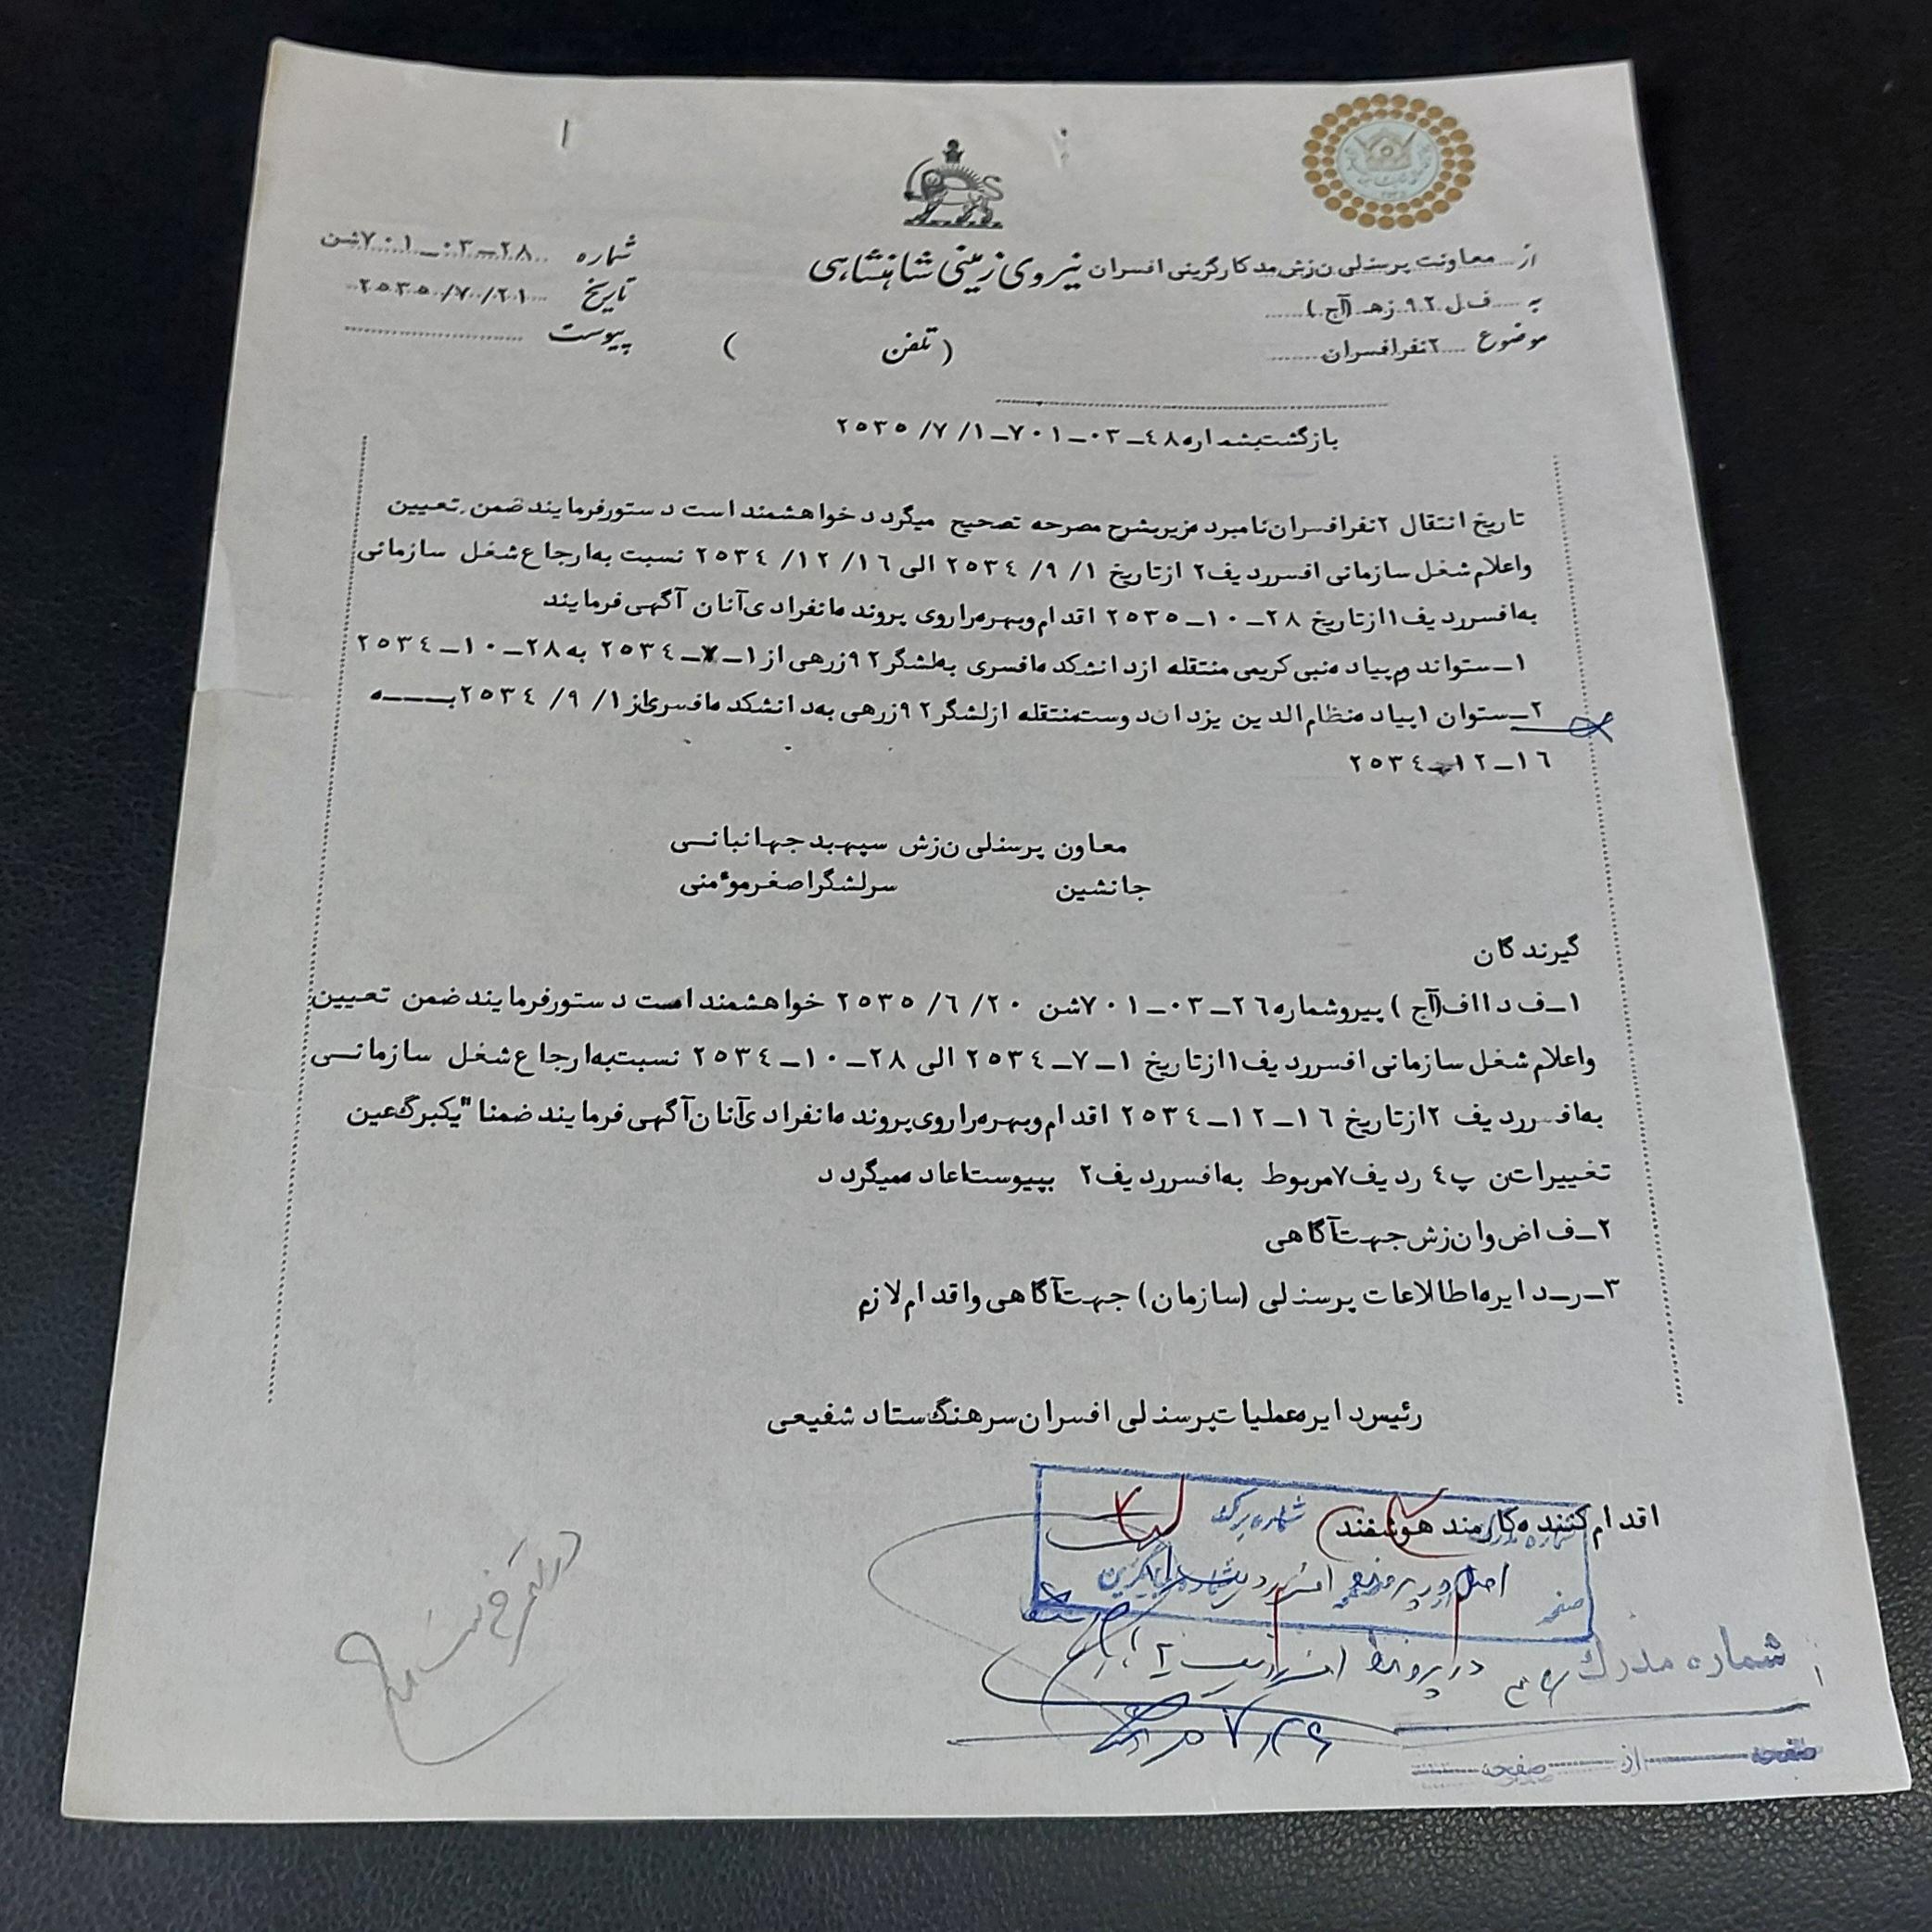 از معاونت پرسنلی نزش مد کارگزینی افسران
نیروی زمینی شاهنشاهی
شماره ۲۸-۰۳-۷۰۱شن
به ف ل ۹۲ زهـ (آج)
تاریخ ۲۵۳۵/۷/۲۱
موضوع ۲نفرافسران
(تلفن )
پیوست
بازگشت بشماره ۴۸-۰۳-۷۰۱-۲۵۳۵/۷/۱
تاریخ انتقال ۲نفرافسران نامبرده زیر بشرح مصرحه تصحیح میگردد خواهشمند است دستورفرمایند ضمن تعیین
واعلام شغل سازمانی افسر ردیف۲ ازتاریخ ۲۵۳۴/۹/۱ الی ۲۵۳۴/۱۲/۱۶ نسبت به ارجاع شغل سازمانی
به افسر ردیف۱ ازتاریخ ۲۸-۱۰-۲۵۳۵ اقدام وبهره راروی پرونده انفرادی آنان آگهی فرمایند
۱-ستواندوم پیاده نبی کریمی منتقله ازدانشکده افسری به لشگر۹۲زرهی از ۱-۷-۲۵۳۴ به ۲۸-۱۰-۲۵۳۴
۲-ستوان۱ پیاده نظام الدین یزداندوست منتقله ازلشگر۹۲زرهی به دانشکده افسری از ۲۵۳۴/۹/۱ بـــه
۱۶-۱۲-۲۵۳۴
معاون پرسنلی نزش سپهبد جهانبانی
جانشین سرلشگر اصغر موٴمنی
گیرندگان
۱-ف د ااف(آج) پیروشماره۲۶-۰۳-۷۰۱شن ۲۵۳۵/۶/۲۰ خواهشمند است دستورفرمایند ضمن تعیین
واعلام شغل سازمانی افسر ردیف۱ ازتاریخ ۱-۷-۲۵۳۴ الی ۲۸-۱۰-۲۵۳۴ نسبت به ارجاع شغل سازمانی
به افسر ردیف ۲ ازتاریخ ۱۶-۱۲-۲۵۳۴ اقدام وبهره راروی پرونده انفرادی آنان آگهی فرمایند ضمنا" یکبرگ عین
تغییرات ن پ۴ ردیف۷ مربوط به افسر ردیف۲ بپیوست اعاده میگردد
۲-ف اض وان زش جهت آگاهی
۳-ر-دایره اطلاعات پرسنلی (سازمان) جهت آگاهی واقدام لازم
رئیس دایره عملیات پرسنلی افسران سرهنگ ستاد شفیعی
اقدام کننده کارمند هوشمند
شماره برگ
شماره مدرک
صفحه
اصل در پرونده افسر ردیف
در پرونده افسر ردیف ۲
شماره مدرک
صفحه از صفحه